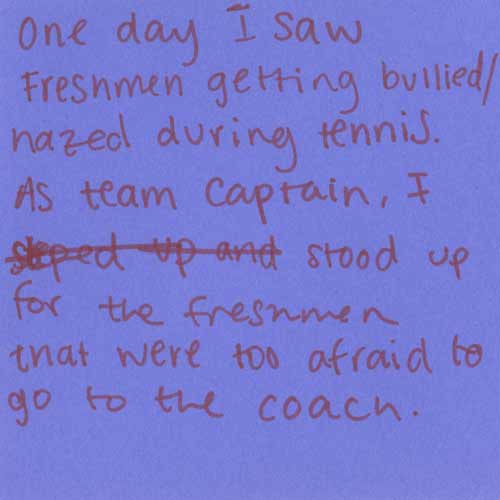 One day I saw
Freshmen getting bullied/
hazed during tennis.
As team captain, I
steped up and stood up
for the freshmen
that were too afraid to
go to the coach.